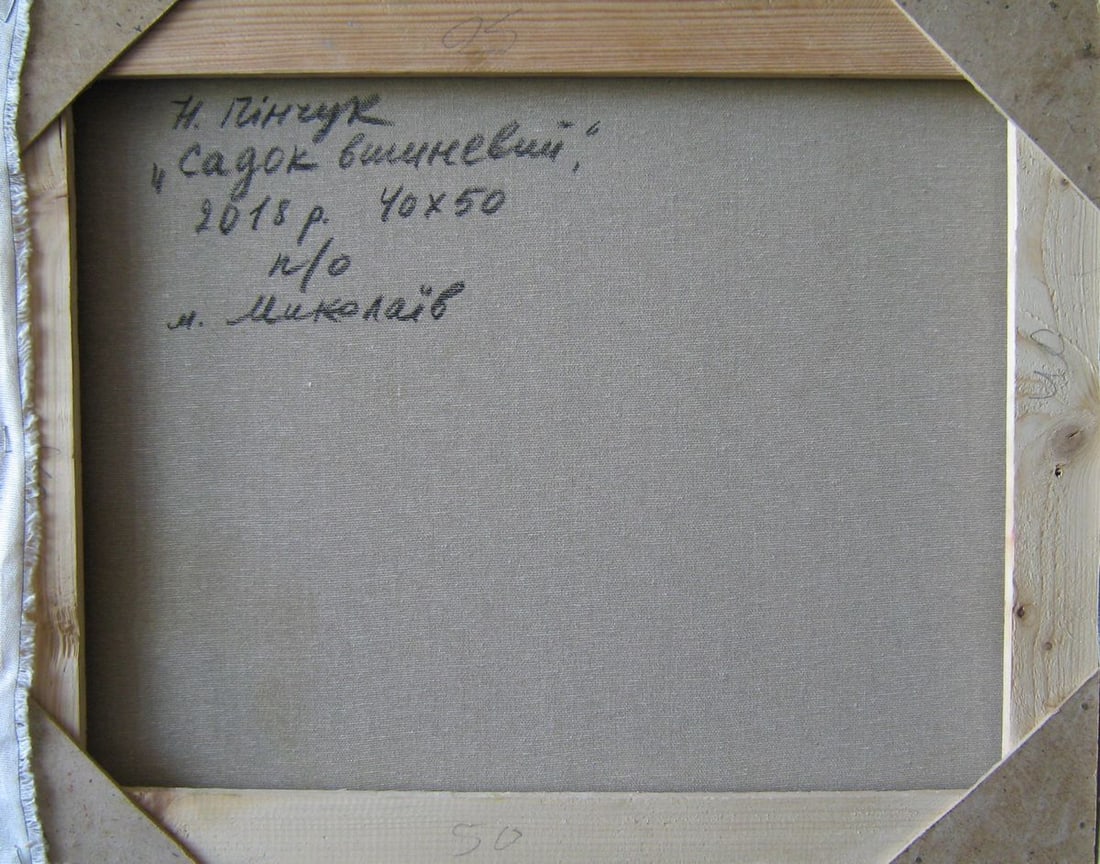 05
Н. Пінчук
„Садок вишневий",
2018 р. 40х50
п/о
м. Миколаїв
40
50